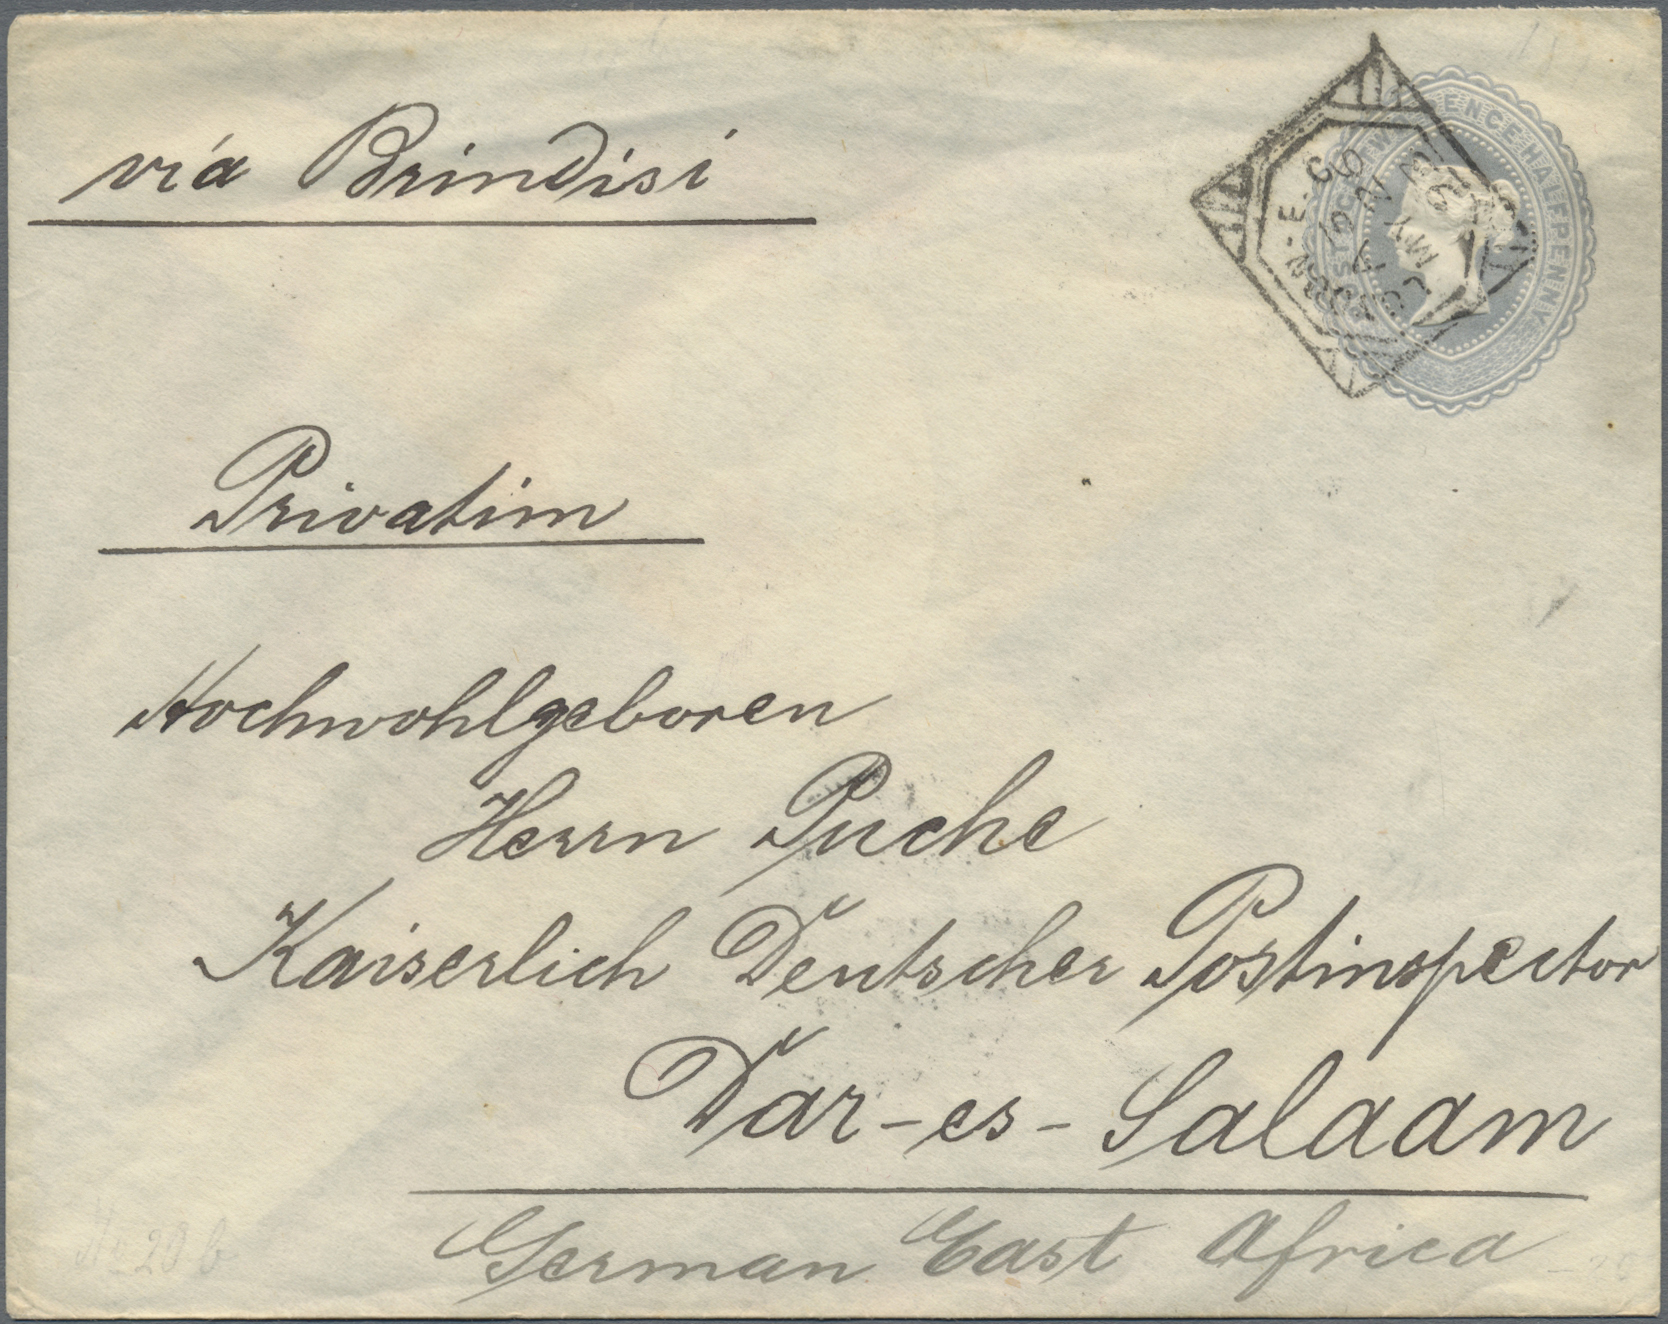 via Brindisi
TWO PENCE HALFPENNY
LONDON-E-C
MY
Privatim
Hochwohlgeboren
Herrn Puche
Kaiserlich Deutscher Postinspector
Dar-es-Salaam
German East Africa
No 20 b